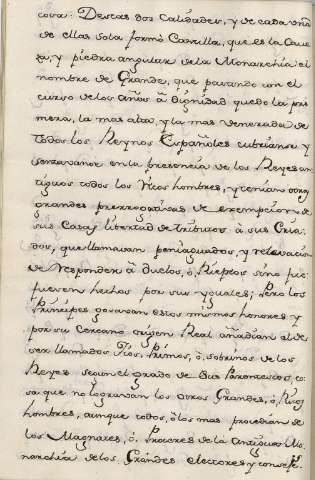 cosa: Destas dos calidades, y de cada una
de ellas sola formó Castilla, que es la Cave
za, y piedra angular de la Monarchía el
nombre de Grande, que parando con el
curso de los años â dignidad quedo la pri
mera, la mas alta, y la mas venerada de
todos los Reynos Españoles cubrianse y
sentavanse en la presencia de los Reyes an
tiguos todos los Ricos hombres; y tenian otras
grandes prerrogativas de exempcion, de
sus Casas, libertad de tributos à sus Cria
dos, que llamavan paniaguados, y relevacion
de responder â duelos, ó, Rieptos sino fue
sen hechos por sus yguales; Pero los
Principes gosavan estos mismos honores y
por su cercano origen Real añadian el de
ser llamados Tios, Primos, ó, sobrinos de los
Reyes segun el grado de sus Parentescos, co
sa que no logravan los otros Grandes, ó, Ricos
hombres, aunque todos, ó los mas procedian de
los Magnates, ó, Proceres de la Antigua Mo
narchia de los Grandes electores y conseje